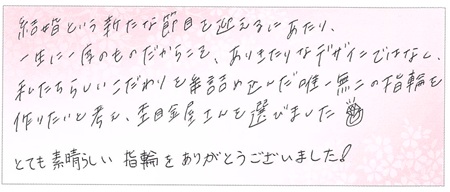 結婚という新たな節目を迎えるにあたり、
一生に一度のものだからこそ、ありきたりなデザインではなく、
私たちらしいこだわりを兼詰め込んだ唯一無二の指輪を
作りたいと考え、杢目金屋さんを選びました
とても素晴らしい指輪をありがとうございました!